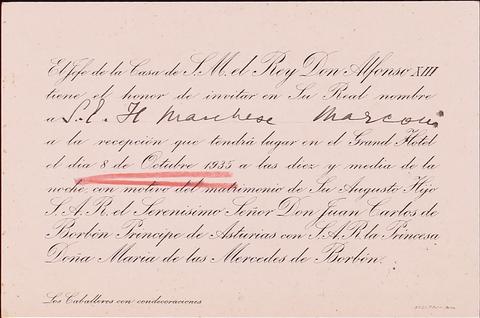 El Jefe de la Casa de S.M. el Rey Don Alfonso XIII
tiene el honor de invitar en Su Real nombre
a S. E. H Marchese Marconi
a la recepción que tendrá lugar en el Grand Hôtel
el día 8 de Octubre 1935 a las diez y media de la
noche, con motivo del matrimonio de Su Augusto Hijo
S.A.R. el Serenísimo Señor Don Juan Carlos de
Borbón Príncipe de Asturias con S.A.R. la Princesa
Doña María de las Mercedes de Borbón.
Los Caballeros con condecoraciones